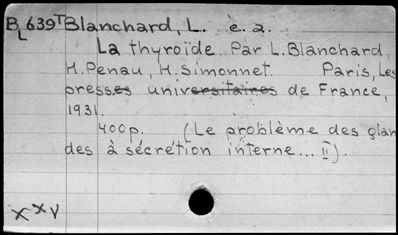 BL639T Blanchard, L. e. a.
La thyroïde. Par L. Blanchard,
H. Penau, H. Simonnet. Paris, Les
presses universitaires de France,
1931.
400p. (Le problème des glan
des à sécrétion interne... II).
x x v